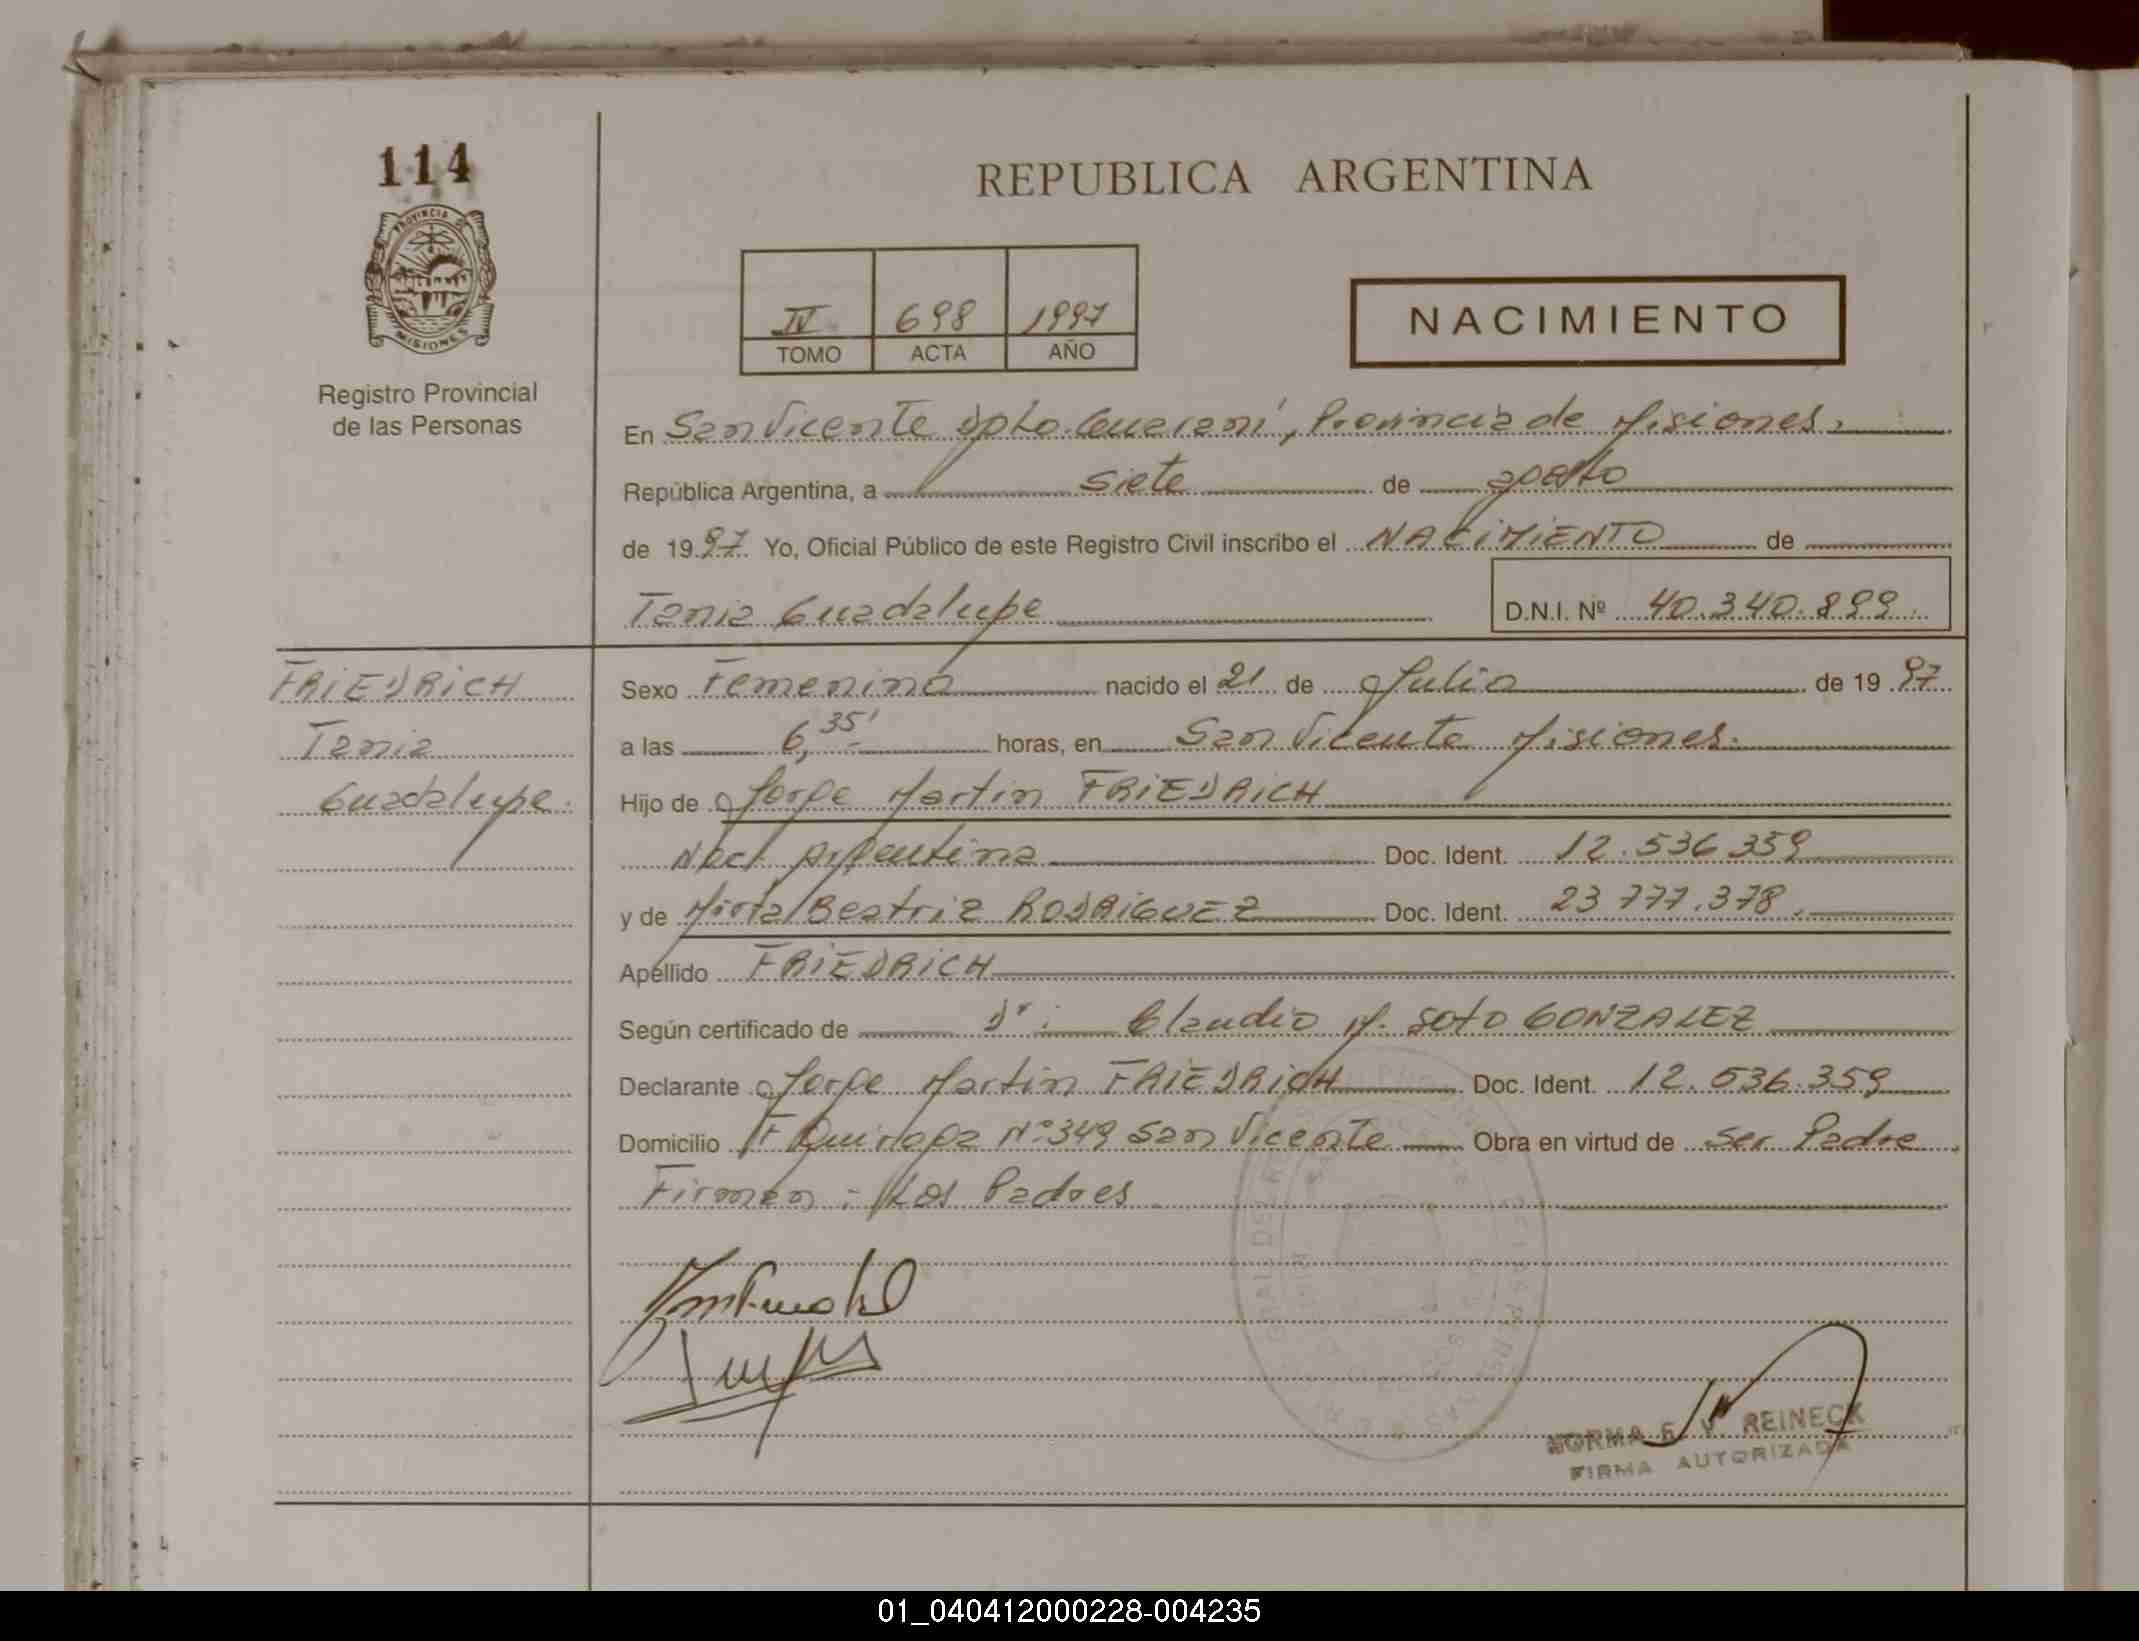 114
PROVINCIA DE
MISIONES
Registro Provincial
de las Personas
REPUBLICA ARGENTINA
IV 698 1997
TOMO ACTA AÑO
NACIMIENTO
En San Vicente Dpto. Guarani, Provincia de Misiones.
República Argentina, a siete de agosto
de 1997 Yo, Oficial Público de este Registro Civil inscribo el NACIMIENTO de
Tania Guadalupe D.N.I. Nº 40.340.899.
FRIEDRICH
Tania
Guadalupe.
Sexo Femenino nacido el 21 de Julio de 1997
a las 6,35' horas, en San Vicente Misiones.
Hijo de Jorge Martin FRIEDRICH
Nac. Argentina Doc. Ident. 12.536.359
y de Mirta Beatriz RODRIGUEZ Doc. Ident. 23.777.378.
Apellido FRIEDRICH
Según certificado de Dr: Claudio M. Soto GONZALEZ
Declarante Jorge Martin FRIEDRICH Doc. Ident. 12.536.359
Domicilio F Quiroga Nº 349 San Vicente Obra en virtud de Ser Padre
Firman: Los Padres
NORMA E. V. REINECK
FIRMA AUTORIZADA
01_040412000228-004235